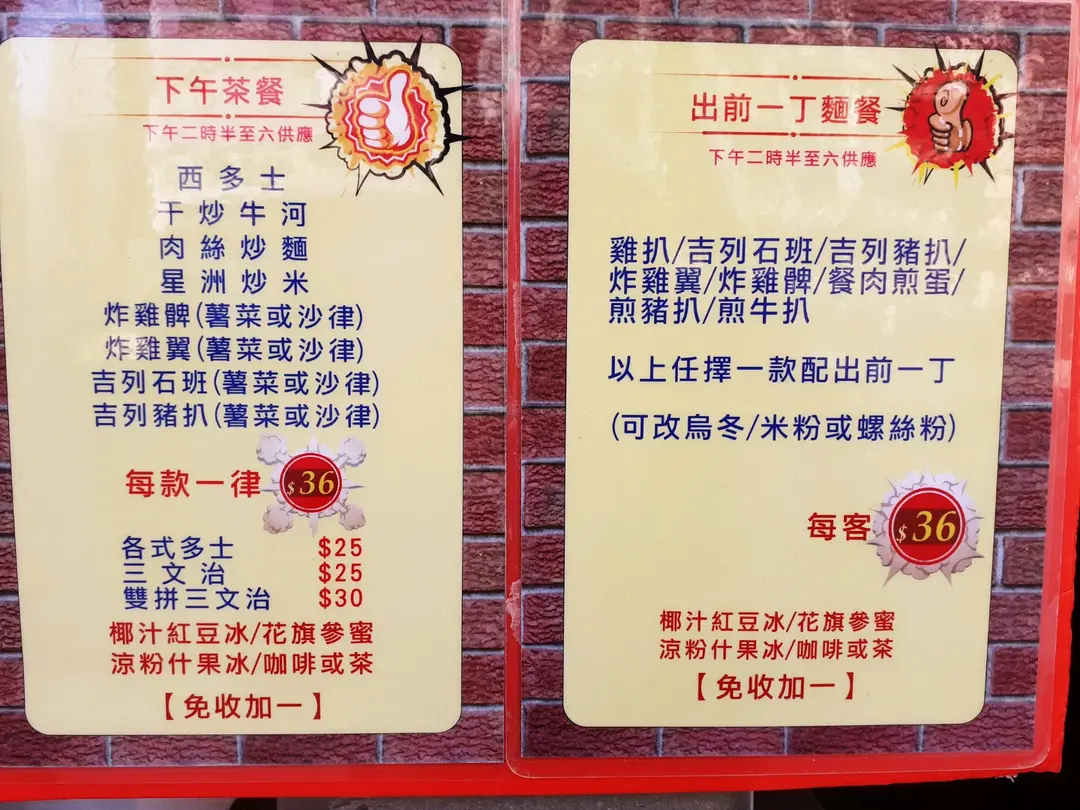 下午茶餐
下午二時半至六供應
西多士
干炒牛河
肉絲炒麵
星洲炒米
炸雞髀(薯菜或沙律)
炸雞翼(薯菜或沙律)
吉列石班(薯菜或沙律)
吉列豬扒(薯菜或沙律)
每款一律 $36
各式多士 $25
三文治 $25
雙拼三文治 $30
椰汁紅豆冰/花旗參蜜
涼粉什果冰/咖啡或茶
【免收加一】
出前一丁麵餐
下午二時半至六供應
雞扒/吉列石班/吉列豬扒/
炸雞翼/炸雞髀/餐肉煎蛋/
煎豬扒/煎牛扒
以上任擇一款配出前一丁
(可改烏冬/米粉或螺絲粉)
每客 $36
椰汁紅豆冰/花旗參蜜
涼粉什果冰/咖啡或茶
【免收加一】